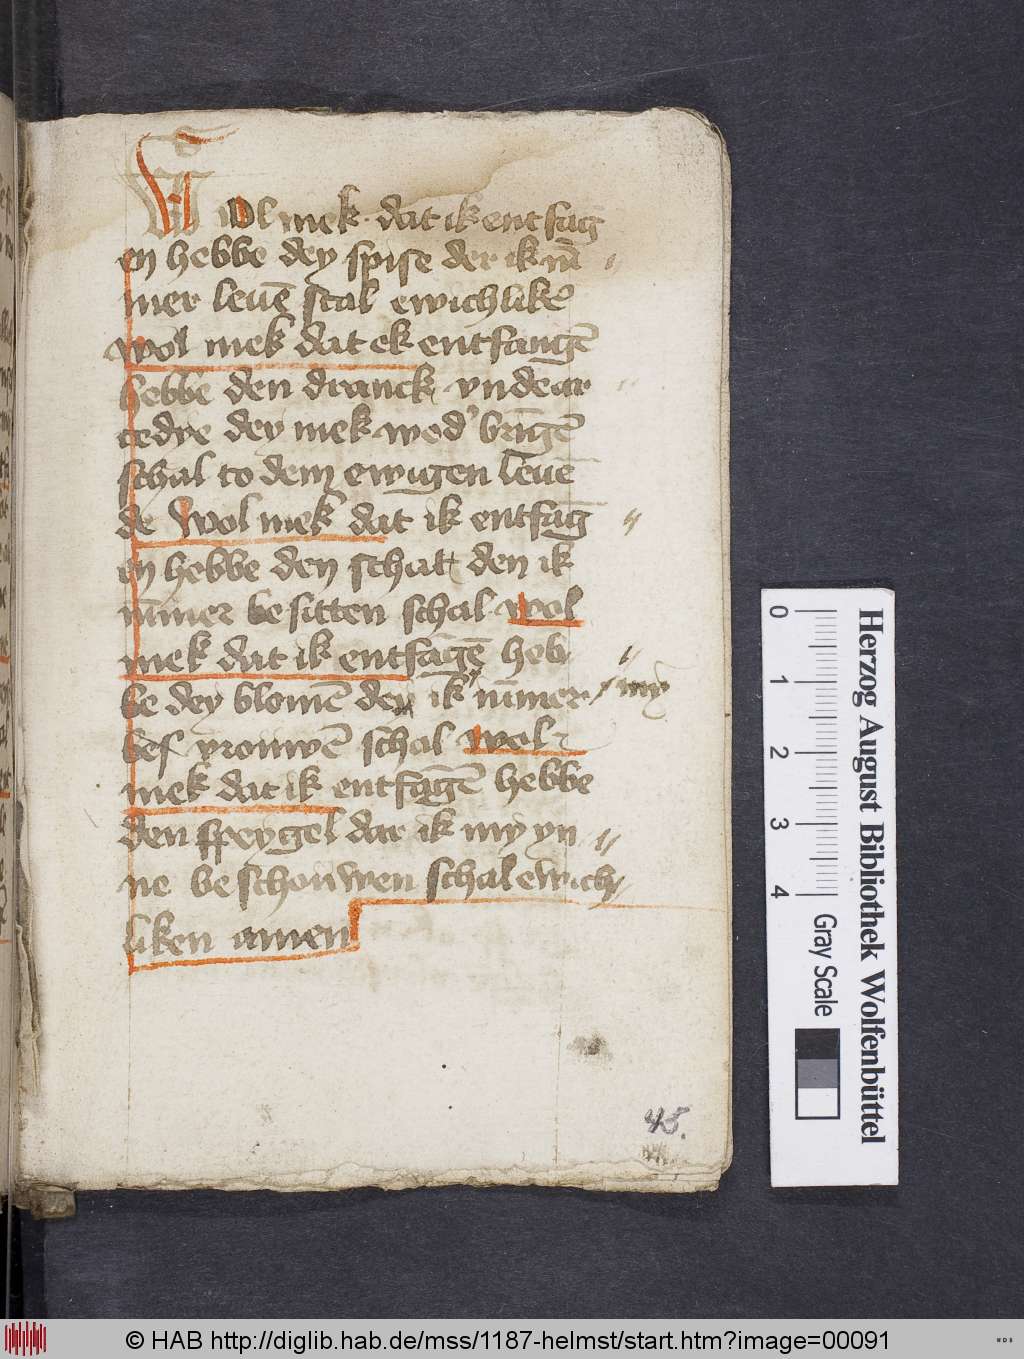 Wol mek dat ik entfāg
en hebbe dey spise der ik nū
mer leuē scal ewichlikē
wol mek dat ek entfangē
hebbe den dranck vnde ar
cedye dey mek wed' bringē
schal to dem ewigen leuē
de wol mek dat ik entfāg
en hebbe den schat den ik
nūmer besitten schal wol
mek dat ik entfāgē heb
be dey blomē dey ik nūmer
vrouwē schal wol
mek dat ik entfāgē hebbe
den speygel dar ik my yn
ne beschouwen schal ewich
liken amen
45.
Herzog August Bibliothek Wolfenbüttel
0 1 2 3 4 Gray Scale
© HAB http://diglib.hab.de/mss/1187-helmst/start.htm?image=00091